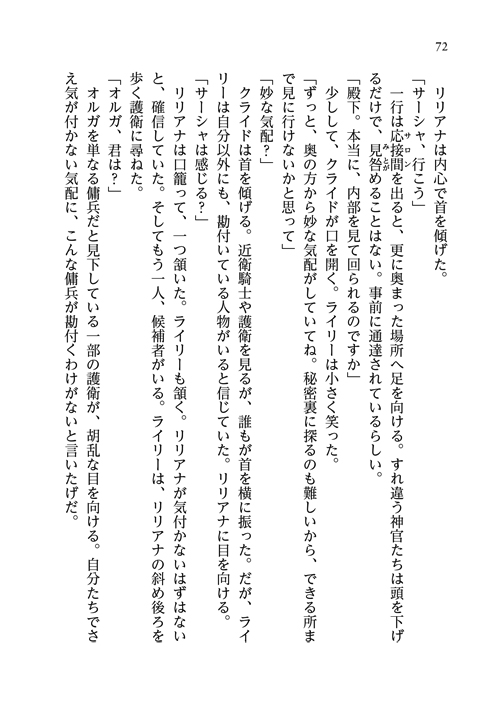 72
リリアナは内心で首を傾げた。
「サーシャ、行こう」
一行は応接間を出ると、更に奥まった場所へ足を向ける。すれ違う神官たちは頭を下げ
サロン
るだけで、見咎めることはない。事前に通達されているらしい。
みとが
「殿下。本当に、内部を見て回られるのですか」
少しして、クライドが口を開く。ライリーは小さく笑った。
「ずっと、奥の方から妙な気配がしていてね。秘密裏に探るのも難しいから、できる所ま
で見に行けないかと思って」
「妙な気配？」
クライドは首を傾げる。近衛騎士や護衛を見るが、誰もが首を横に振った。だが、ライ
リーは自分以外にも、勘付いている人物がいると信じていた。リリアナに目を向ける。
「サーシャは感じる？」
リリアナは口籠って、一つ頷いた。ライリーも頷く。リリアナが気付かないはずはない
と、確信していた。そしてもう一人、候補者がいる。ライリーは、リリアナの斜め後ろを
歩く護衛に尋ねた。
「オルガ、君は？」
オルガを単なる傭兵だと見下している一部の護衛が、胡乱な目を向ける。自分たちでさ
え気が付かない気配に、こんな傭兵が勘付くわけがないと言いたげだ。